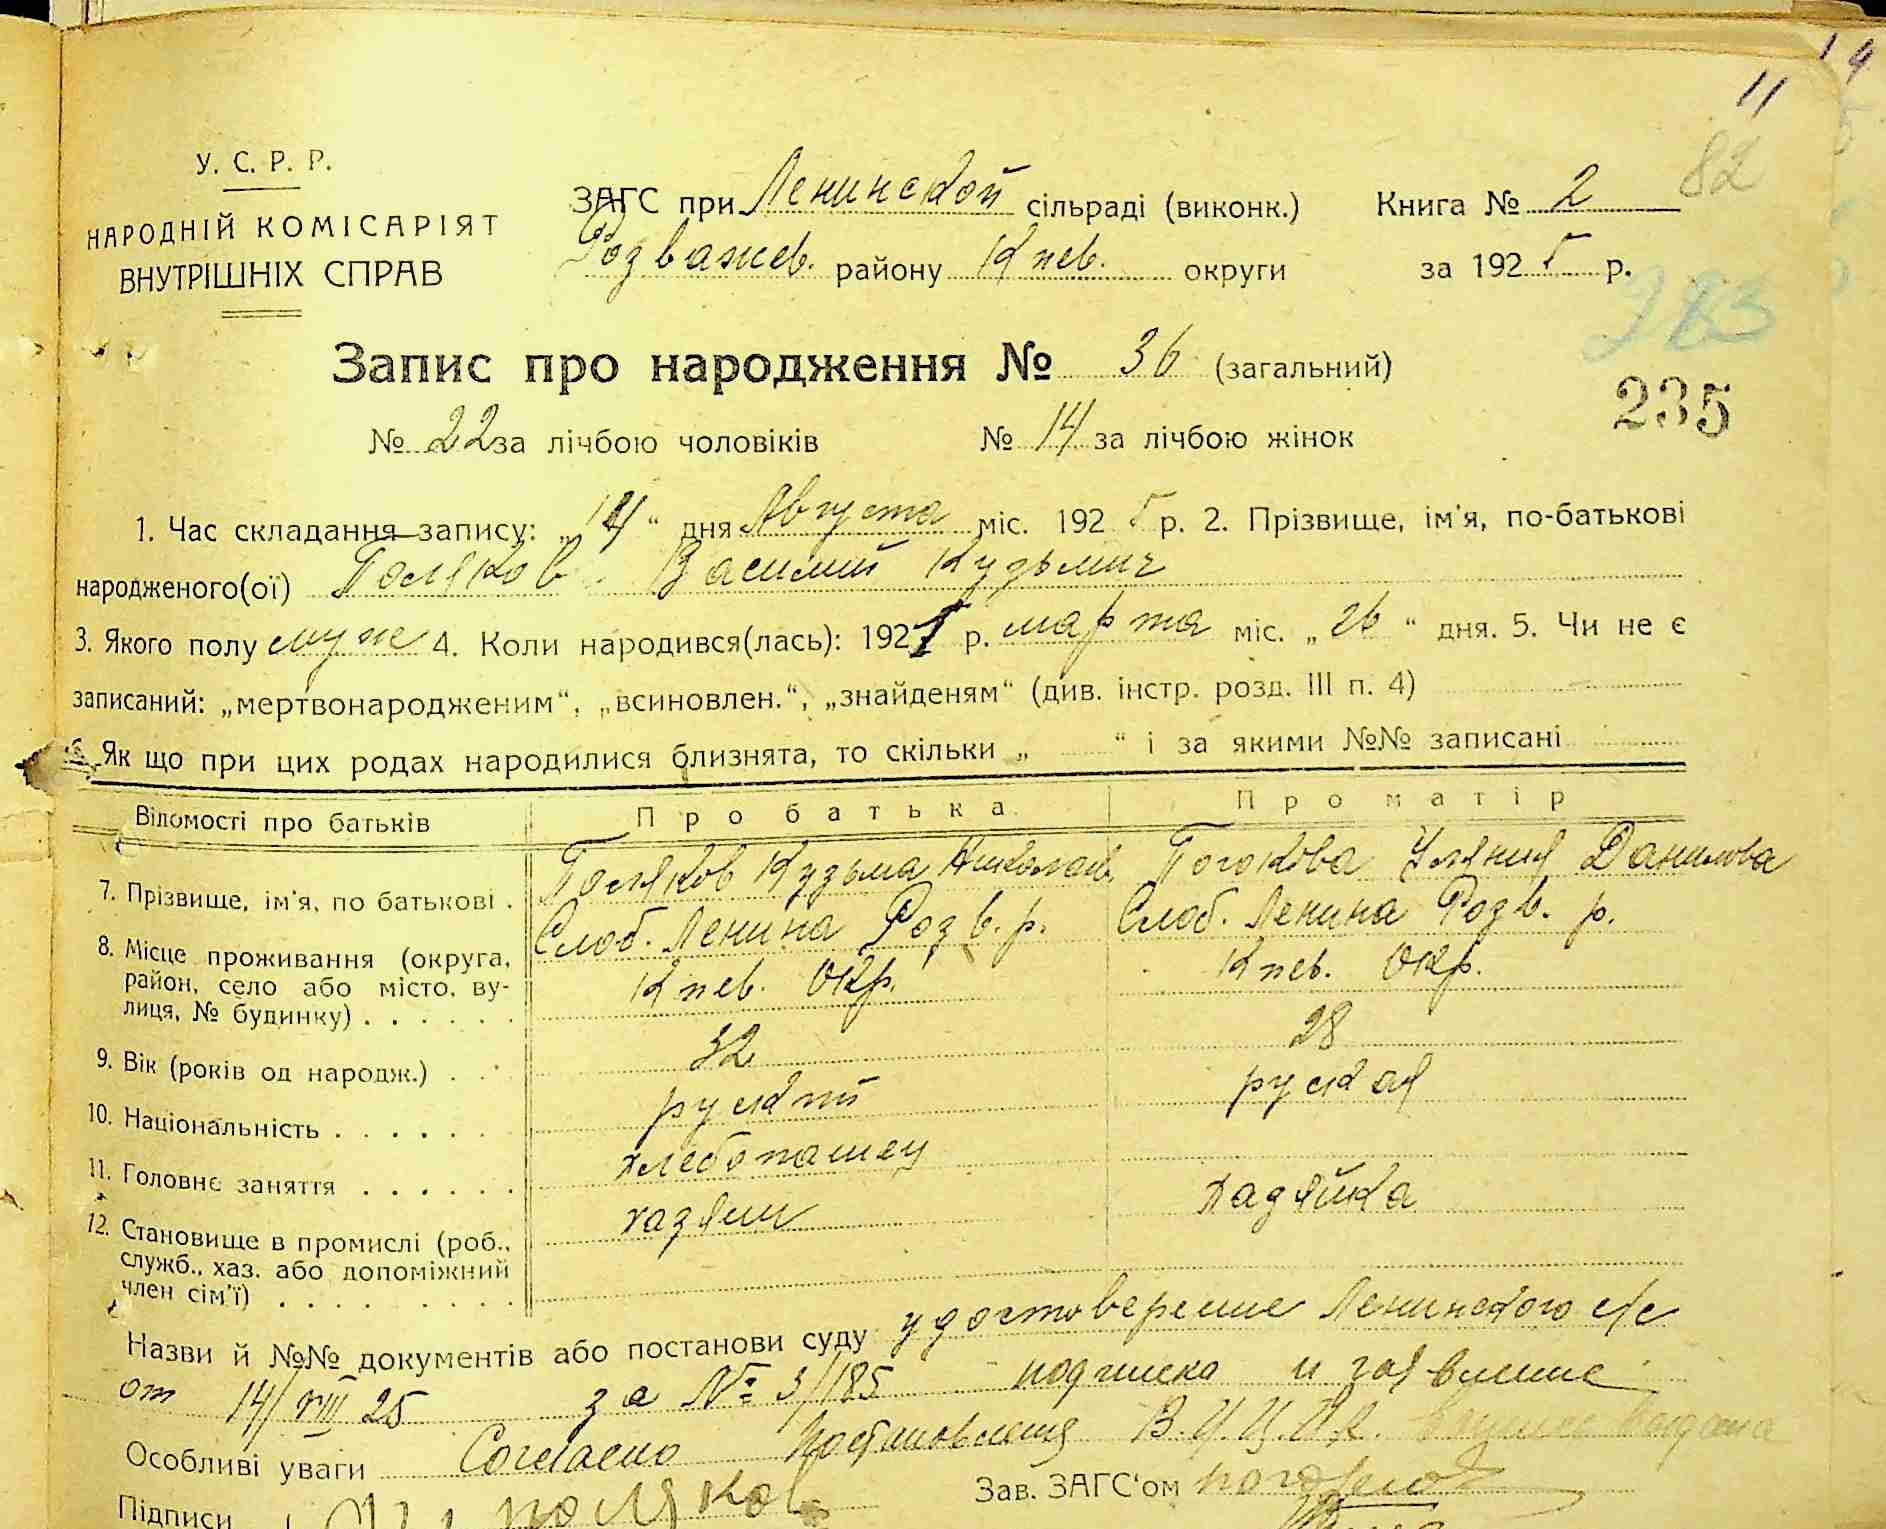 14
11
82
У. С. Р. Р.
НАРОДНІЙ КОМІСАРІЯТ
ВНУТРІШНІХ СПРАВ
ЗАГС при Ленинской сільраді (виконк.) Книга № 2
Розважев. району Киев. округи за 1925 р.
283
Запис про народження № 36 (загальний)
235
№ 22 за лічбою чоловіків № 14 за лічбою жінок
1. Час складання запису: „14“ дня Августа міс. 1925 р. 2. Прізвище, ім'я, по-батькові
народженого(ої) Поляков Василий Кузьмич
3. Якого полу муж 4. Коли народився(лась): 192 р. марта міс. „26“ дня. 5. Чи не є
записаний: „мертвонародженим“, „всиновлен.“, „знайденям“ (див. інстр. розд. III п. 4)
6. Як що при цих родах народилися близнята, то скільки „ “ і за якими №№ записані
Відомості про батьків Про батька Про матір
7. Прізвище, ім'я, по батькові . Поляков Кузьма Николаев. Ульяния Данилова
8. Місце проживання (округа, район, село або місто, вулиця, № будинку) . . . . . . Слоб. Ленина Розв. р. Киев. Окр. Слоб. Ленина Розв. р. Киев. Окр.
9. Вік (років од народж.) . . . 32 28
10. Національність . . . . . . руский руская
11. Головнє заняття . . . . . . хлебопашец
12. Становище в промислі (роб., служб., хаз. або допоміжний член сім'ї) . . . . . . . . . хазяин хадзяйка
Назви й №№ документів або постанови суду удостоверение Ленинского с/с
от 14/VIII 25 за № 3/185 подписка и заявление
Особливі уваги Согласно постановления В.У.Ц.И.К.
Підписи Поляков Зав. ЗАГС'ом